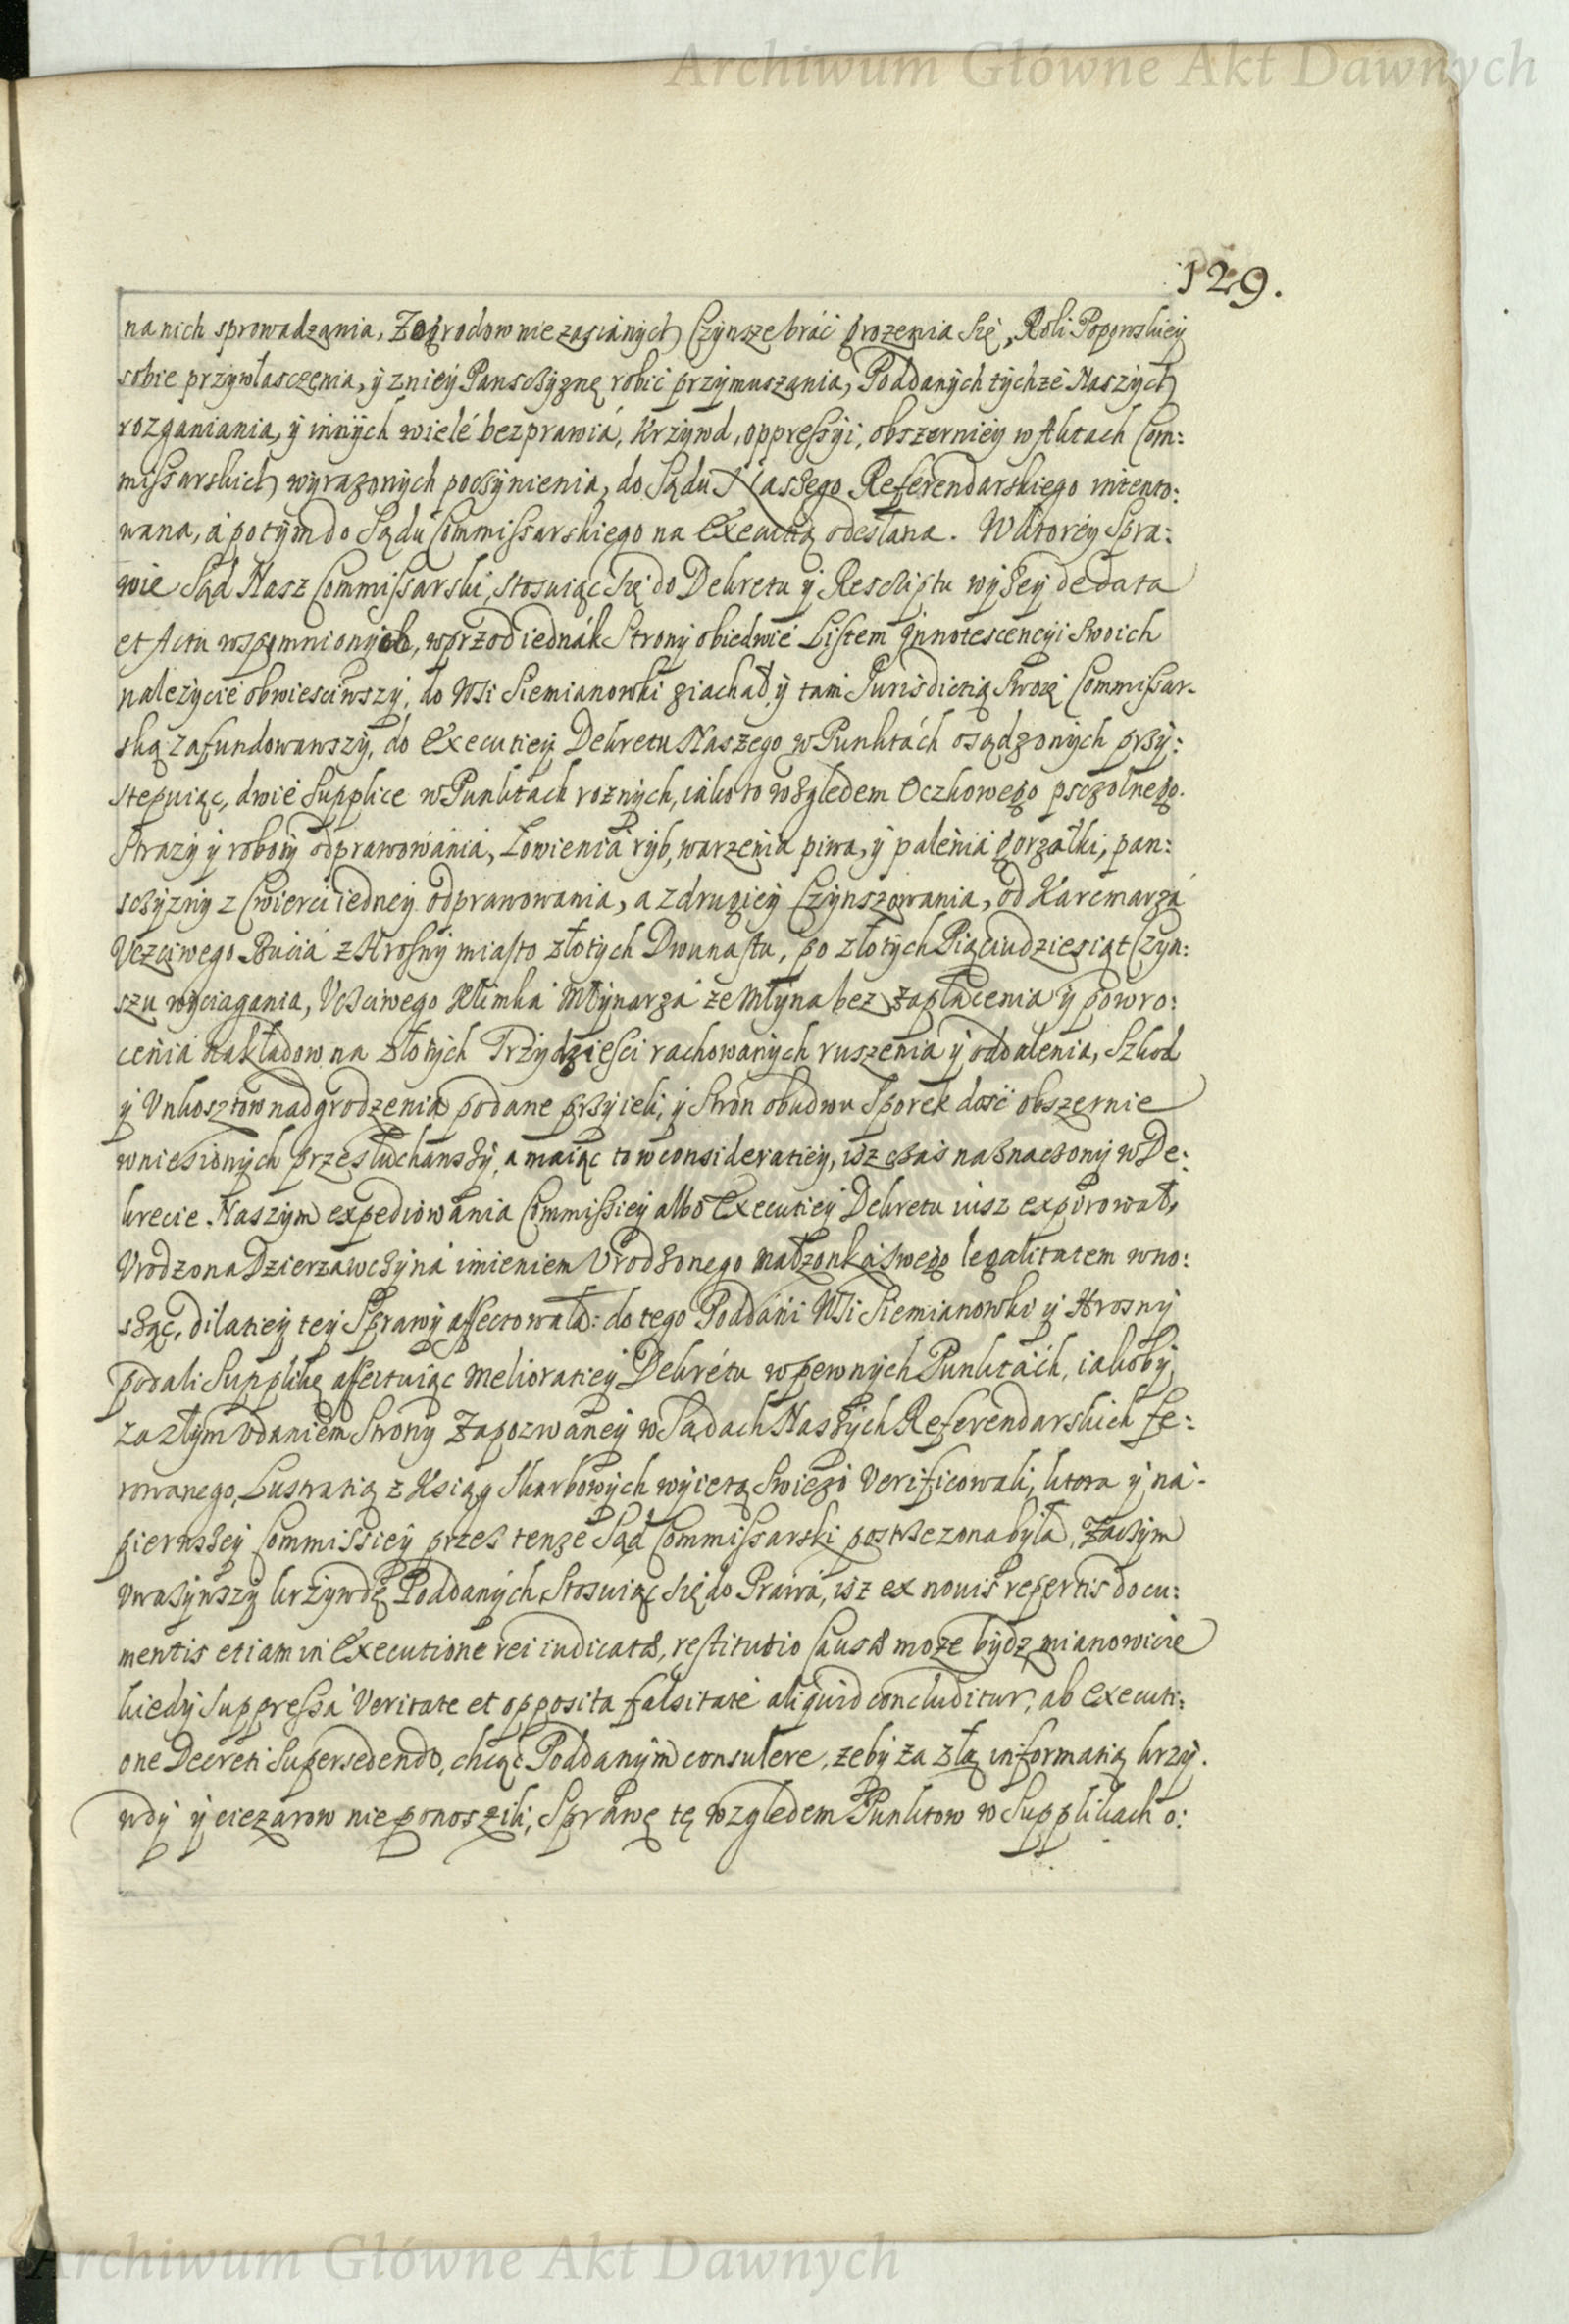 Archiwum Główne Akt Dawnych
129.
na nich sprowadzania, Zogrodow nie zasianych Czynsze bráć grozenia się, Roli Poporoskiey
sobie przywłasczenia, ÿ z nieÿ Pansczyznę robić przymuszania, Poddanÿch tÿchże Naszÿch
rozganiania, ÿ innÿch wielé bezprawiá, Krzywd, oppressÿi, obszerniéÿ w Aktach Com:
missarskich wÿrazonÿch poczÿnienia, do Sądu Naszego Referendarskiego intento:
wana, á potÿm do Sądu Commissarskiego na Executią odesłana. W ktoreÿ Spra:
wie Sąd Nasz Commissarski, stosuiąc się do Dekretu ÿ Rescriptu wÿżeÿ de data
et Actu wspomnionÿch, wprzod iednák Stronÿ obiedwié Listem Innotescencÿi swoich
nalezÿcie obwiesciwszÿ, do Wsi Siemianowki ziachał, ÿ tam Jurisdictią Swoię Commissar-
ską zafundowawszÿ, do Executieÿ Dekretu Naszego w Punktách osądzonÿch przÿ:
stepuiąc, dwie Supplice w Punktach roznÿch, iako to wzgledem Oczkowego psczolnego.
Strazÿ ÿ robotÿ odprawowánia, Łowienia rÿb, warzenia piwa, ÿ palenia gorzałki, pan:
sczÿznÿ z Cwierci iedneÿ odprawowania, a z drugieÿ Czÿnszowania, od Karcmarzá
Uczciwego Bucia z Hrosnÿ miasto złotÿch Dwunastu, po złotÿch Piąciudziesiąt Czÿn:
szu wÿciagania, Uczciwego Klimka Młÿnarza ze Młÿna bez zapłacenia ÿ powro:
cenia nakładow na złotÿch Trzÿdziesci rachowanÿch ruszenia ÿ oddalenia, Szkod
ÿ Unkosztow nadgrodzenia podane przÿieli, ÿ Stron obudwu Sporek dość obszernie
wniesionÿch przesłuchawszÿ, a maiąc to w consideratieÿ, isz czas naznaczonÿ w De:
krecie Naszym expediowánia Commissieÿ albo Executieÿ Dekretu iusz expirował,
Urodzona Dzierzawczÿna imieniem Urodzonego małzonka swego legalitatem wno:
sząc, dilatieÿ teÿ Sprawÿ affectowała: do tego Poddáni Wsi Siemianowki ÿ Hrosnÿ
podali Supplikę affectuiąc melioratieÿ Dekrétu w pewnÿch Punktách, iakobÿ
za złÿm Udaniem Stronÿ Zapozwaneÿ w Sądach Naszÿch Referendarskich fe:
rowanego, Lustratią z Ksiąg Skarbowÿch wÿietą swiezo Verificowali, ktora ÿ na
pierwszeÿ Commissieÿ przez tenze Sąd Commissarski postrzezona bÿła, Zaczÿm
Uwazÿwszÿ krzÿwdę Poddanÿch Stosuiąc się do Prawa, isz ex nouis repertis docu:
mentis etiam in Executione rei iudicatæ, restitutio Causæ może bÿdz mianowicie
kiedÿ suppressa Veritate et opposita falsitate aliquid concluditur, ab Executi:
one Decreti Supersedendo, chcąc Poddanÿm consulere, zebÿ za złą informatią krzÿ.
wdÿ ÿ ciezarow nie ponosili, Sprawę tę wzgledem Punktow w Supplikach o:
Archiwum Główne Akt Dawnych